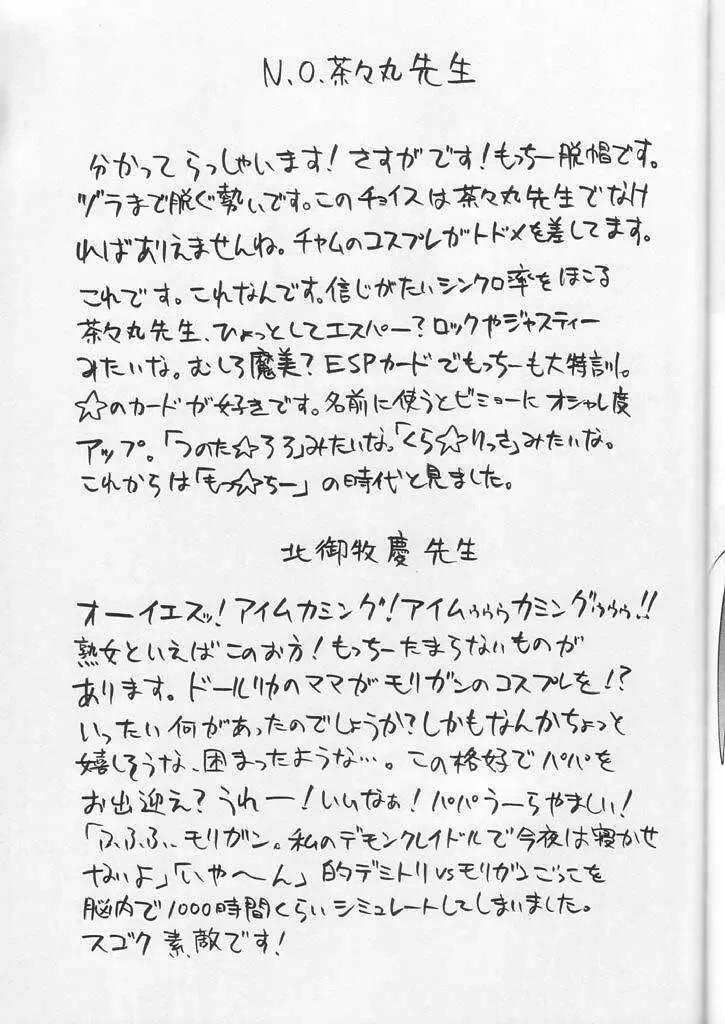 N.O.茶々丸先生
分かってらっしゃいます!さすがです!もっちー脱帽です。
ヅラまで脱ぐ勢いです。このチョイスは茶々丸先生でなけ
ればありえませんね。チャムのコスプレがトドメを差してます。
これです。これなんです。信じがたいシンクロ率をほこる
茶々丸先生、ひょっとしてエスパー?ロックやジャスティー
みたいな。むしろ魔美?ESPカードでもっちーも大特訓。
☆のカードが好きです。名前に使うとビミョーにオシャレ度
アップ。「つのた☆ろう」みたいな。「くら☆りっさ」みたいな。
これからは「もっ☆ちー」の時代と見ました。
北御牧慶先生
オーイエスッ!アイムカミング!アイムゥゥゥカミングゥゥゥ!!
熟女といえばこのお方!もっちーたまらないものが
あります。ドールリカのママがモリガンのコスプレを!?
いったい何があったのでしょうか?しかもなんかちょっと
嬉しそうな、困まったような…。この格好でパパを
お出迎え?うれー!いいなぁ!パパうーらやましい!
「ふふふ…モリガン。私のデモンクレイドルで今夜は寝かせ
ないよ」「いや～ん」的デミトリvsモリガンごっこを
脳内で1000時間くらいシミュレートしてしまいました。
スゴク素敵です!